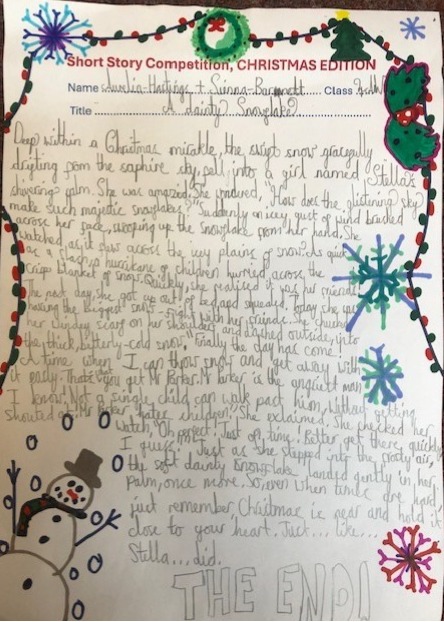 Short Story Competition, CHRISTMAS EDITION
Name Aurelia Hastings + Sienna Class
Title A dainty Snowflake?
Deep within a Christmas mirakle the swept snow gracefully
drifting from the saphire sky, fell into a girl named Stella's
shivering palm. She was amazed. She wondered, "How does the glistening sky
make such majestic snowflakes?" Suddenly an icey, gust of wind brushed
across her face, swooping up the snowflake from her hand. She
watched, as it flew across the icey plains of snow. As quick
as a flash, a hurricane of children hurried across the
crisp blanket of snow. Quickly, she realised it was her friends!
The next day, She got up out of bed and squealed. Today she was
having the biggest snow-fight with her friends. She chucked
her windey scarf on her shoulders and dashed outside, into
the thick, butterly-cold snow. "Finally the day has come!
A time when I can throw snow and get away with
it easly. Thats you get Mr Parker. Mr Parker is the angriest man
I know. Not a single child can walk past him, without getting
shouted at. Mr Parker hates children," She exclaimed. She checked her
watch, "Oh perfect! Just on, time. Better get there, quickly
I guess." Just as she stepped into the frosty air,
the soft dainty snowflake landed gently in her
palm, once more. So, even when times are hard
just remember Christmas is near and hold it
close to your heart. Just... like...
Stella... did.
THE END!